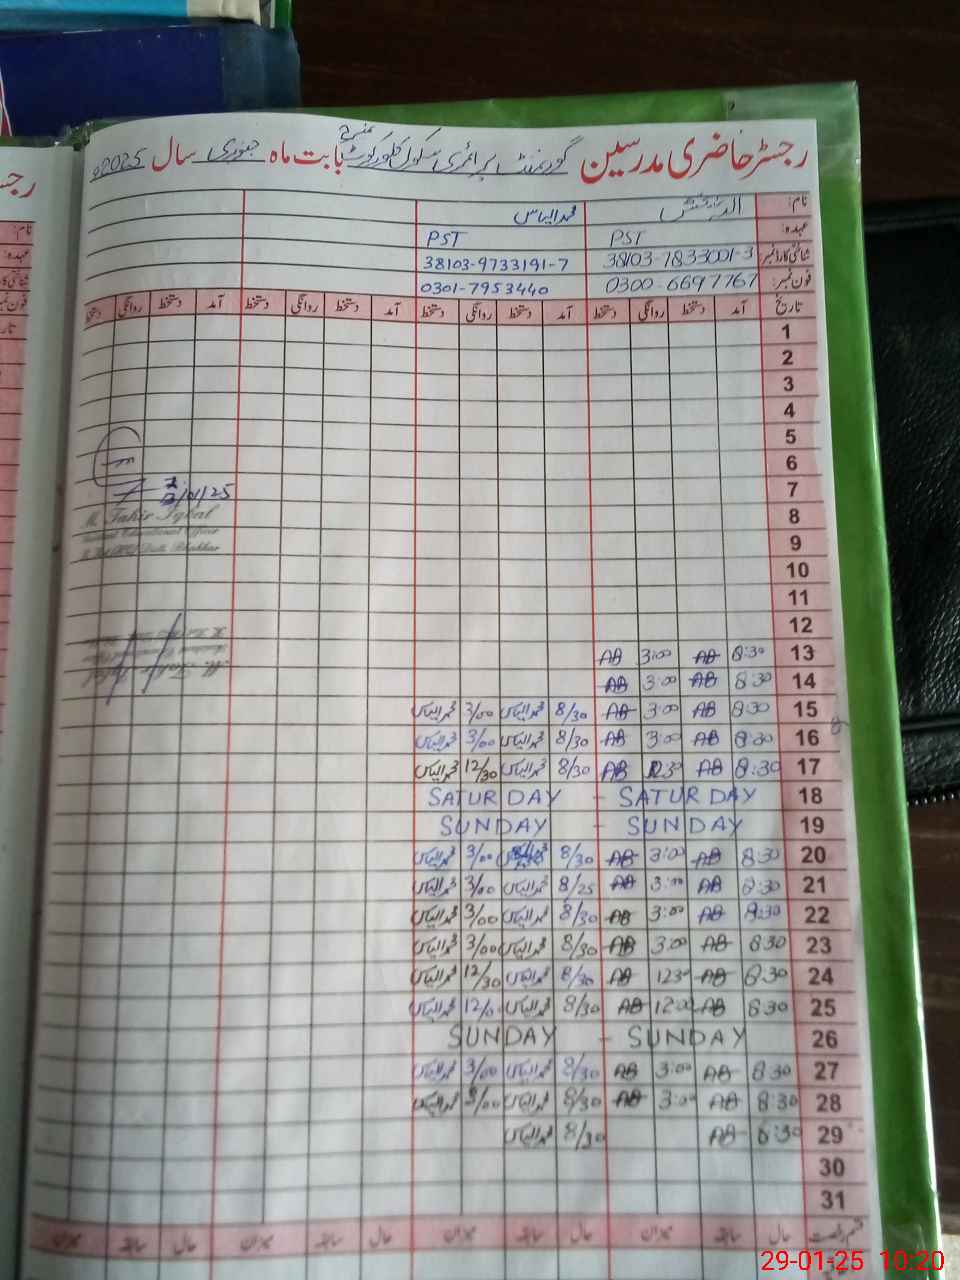 رجسٹر حاضری مدرسین گورنمنٹ پرائمری سکول کلورکوٹ بابت ماہ جنوری سال 2025ء
نام: الله بخش محمد الیاس
عہدہ: PST PST
شناختی کارڈ نمبر 38103-7833001-3 38103-9733191-7
فون نمبر: 0300-6697767 0301-7953440
تاریخ آمد دستخط روانگی دستخط آمد دستخط روانگی دستخط آمد دستخط روانگی دستخط آمد دستخط روانگی دستخط
1
2
3
4
5
6
7 /01/25
8 M. Tahir Iqbal
9
10
11
12
13 8:30 AB 3:00 AB
14 8:30 AB 3:00 AB
15 8:30 AB 3:00 AB 8/30 محمد الیاس 3/00 محمد الیاس
16 8:30 AB 3:00 AB 8/30 محمد الیاس 3/00 محمد الیاس
17 8:30 AB 1230 AB 8/30 محمد الیاس 12/30 محمد الیاس
18 SATURDAY - SATURDAY
19 SUNDAY - SUNDAY
20 8:30 AB 3:00 AB 8/30 3/00 محمد الیاس
21 8:30 AB 3:00 AB 8/25 محمد الیاس 3/00 محمد الیاس
22 8:30 AB 3:00 AB 8/30 محمد الیاس 3/00 محمد الیاس
23 830 AB 3:00 AB 8/30 محمد الیاس 3/00 محمد الیاس
24 8:30 AB 1230 AB 8/30 محمد الیاس 12/30 محمد الیاس
25 830 AB 12:00 AB 8/30 محمد الیاس 12/0 محمد الیاس
26 SUNDAY - SUNDAY
27 8:30 AB 3:00 AB 8/30 محمد الیاس 3/00 محمد الیاس
28 8:30 AB 3:00 AB 8/30 محمد الیاس 3/00 محمد الیاس
29 8:30 AB 8/30 محمد الیاس
30
31
قسم رخصت حال میزان حال سابقہ میزان حال سابقہ میزان حال سابقہ میزان
29-01-25 10:20